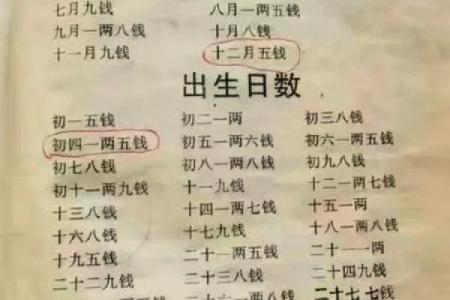 七月九钱 八月一两五钱
九月一两八钱 十月八钱
十一月九钱 十二月五钱
出生日数
初一五钱 初二一两 初三八钱
初四一两五钱 初五一两六钱 初六一两五钱
初七八钱 初八一两八钱 初九八钱
初十一两九钱 十一九钱 十二一两七钱
十三八钱 十四一两七钱 十五一两
十六八钱 十七九钱 十八一两八钱
十九五钱 二十一两五钱 二十一一两
二十二九钱 二十三八钱 二十四九钱
二十七七钱